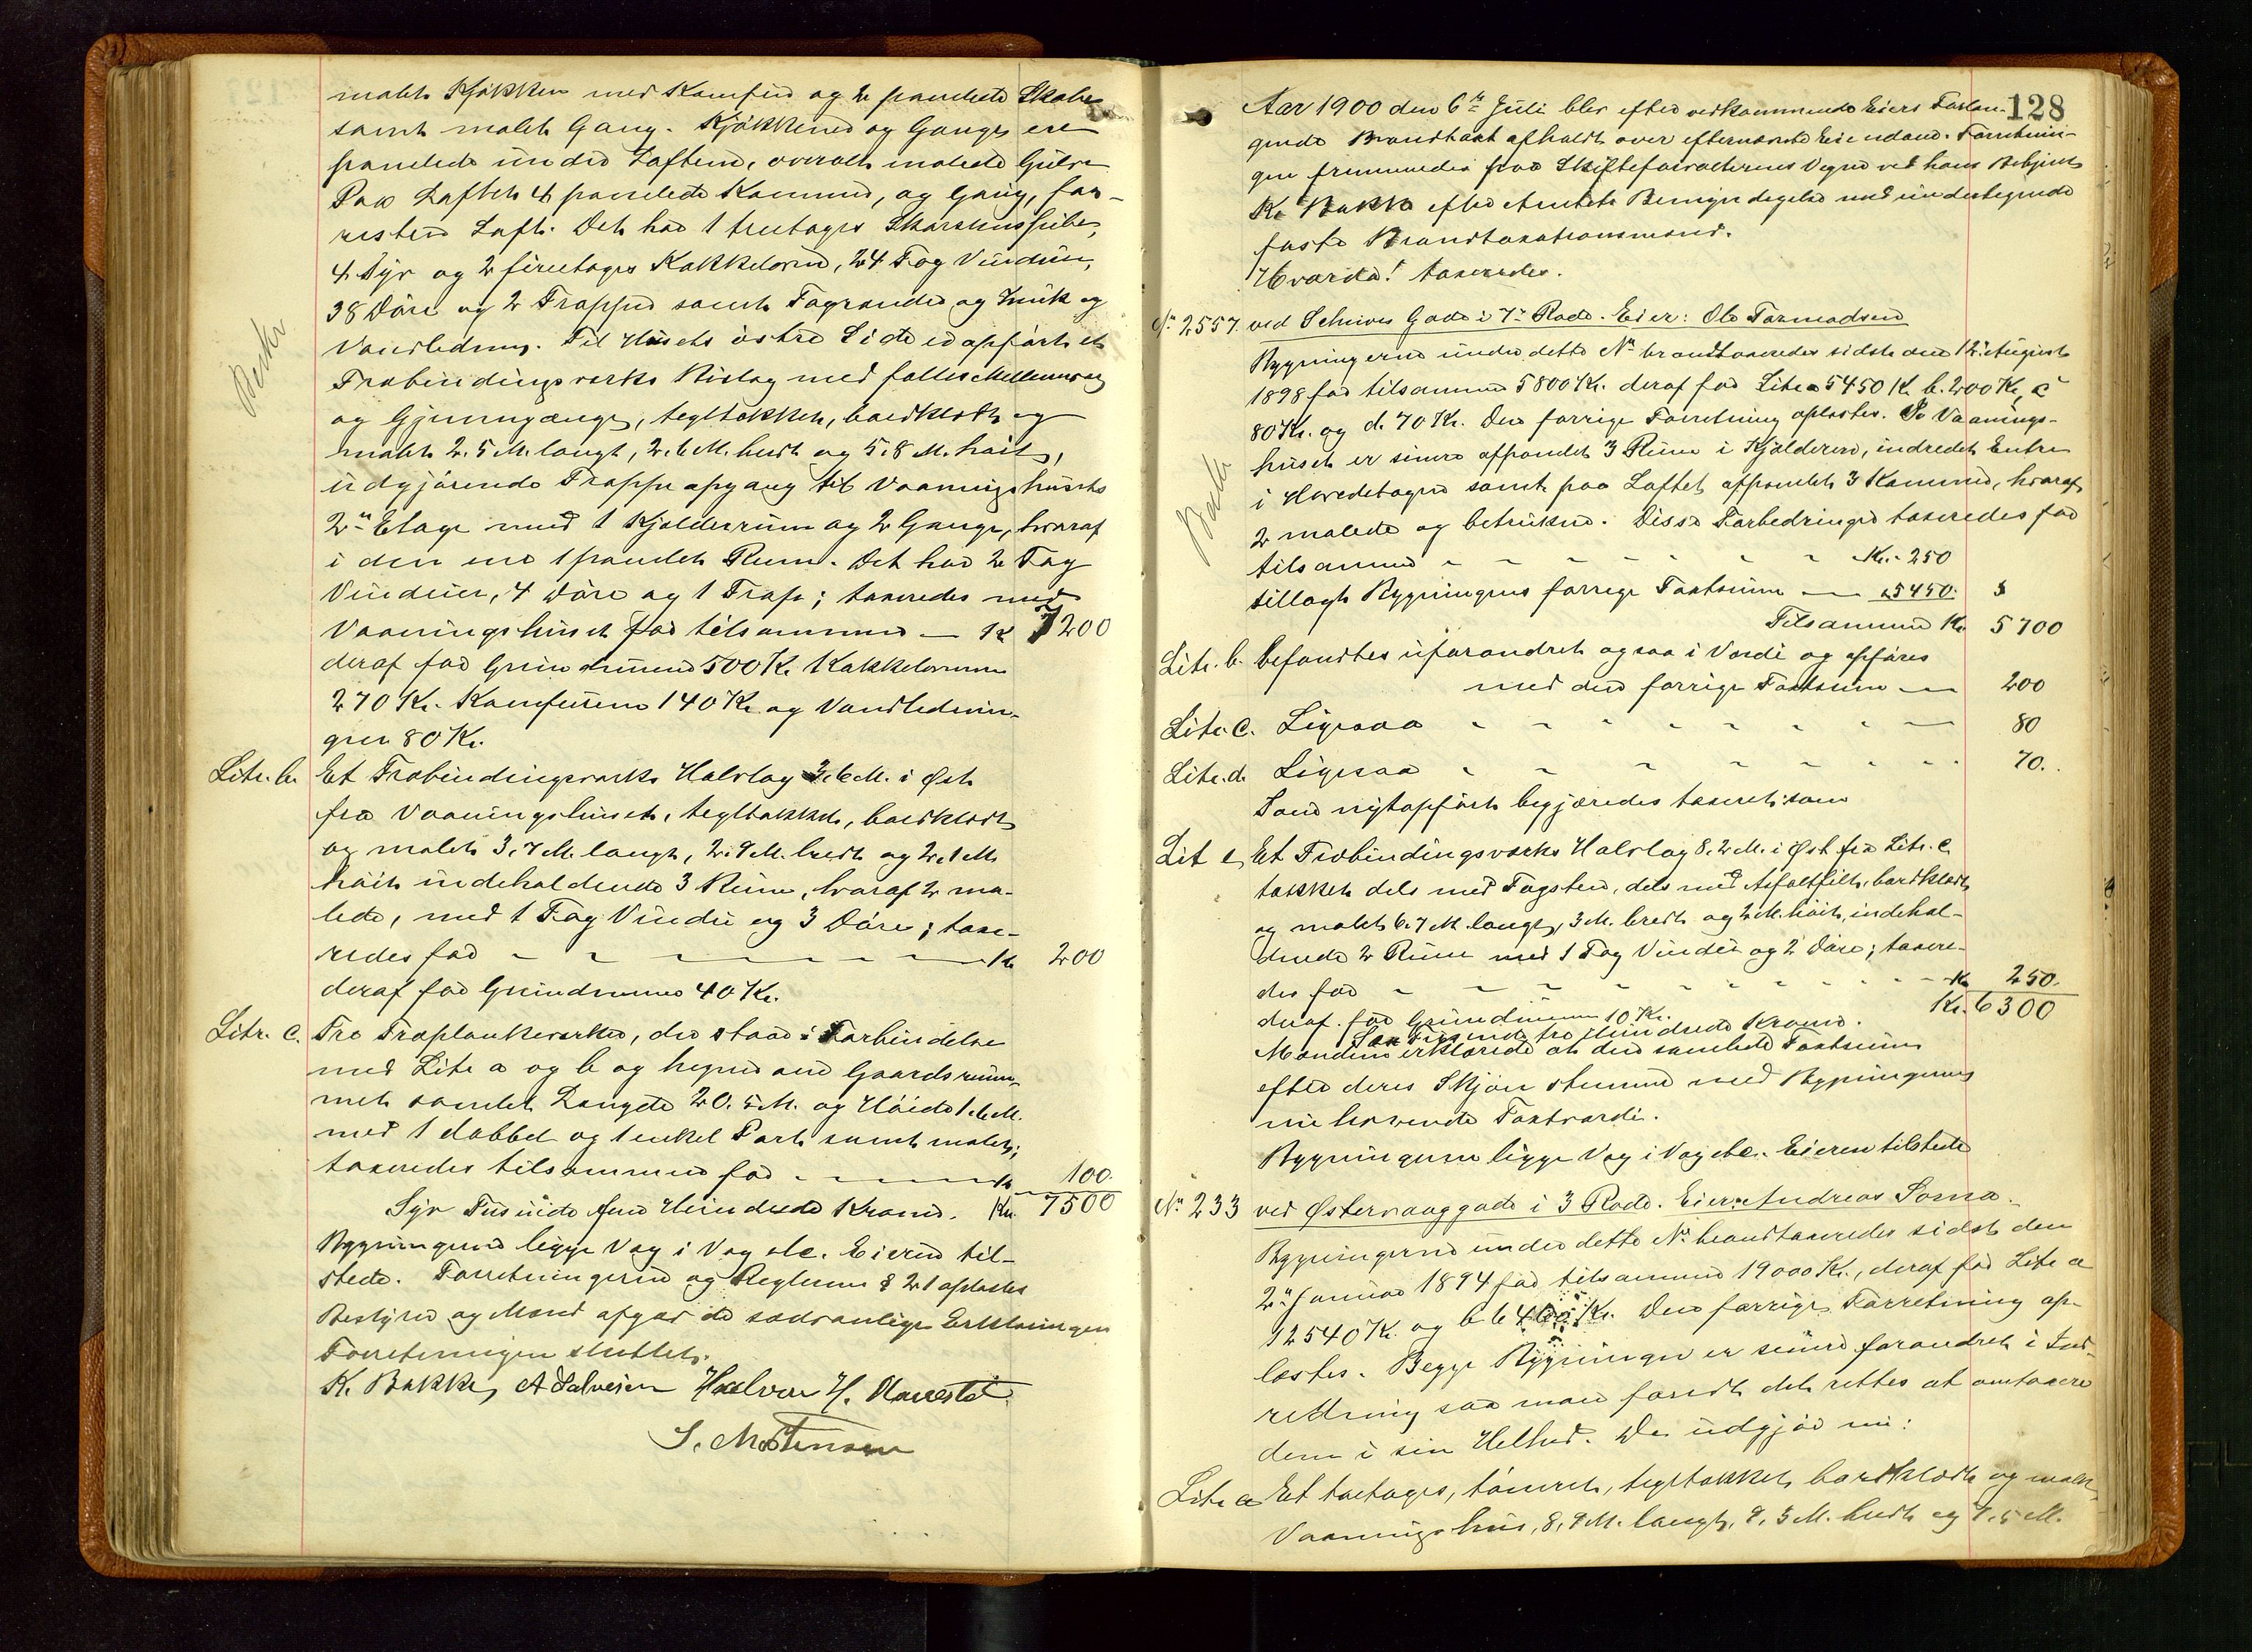 malet Kjøkken med Komfur og 2 panelede Skabe
samt malet Gang. Kjøkkener og Gange ere
panelede under Loftene, overalt malede Gulve
Paa Loftet 4 panelede Kammer, og Gang, for-
resten Loft. Det har 1 treetages Skorstenspibe,
4 Fyr og 2 fireetages Kakkelovne, 24 Fag Vinduer,
38 Døre og 2 Trapper samt Tagrender og Huuk og
Vandledning. Til Husets østre Side er opført et
Træbindingsværks Bislag med fælles Mellemvæg
og Gjennemgange, tegltækket, bordklædt og
malet 2.5 M. langt, 2.6 M. bredt og 5.8 M. høit,
udgjørende Trappeopgang til Vaaningshusets
2den Etage med 1 Kjælderrum og 2 Gange, hvoraf
i den ene 1 panelet Rum. Det har 2 Fag
Vinduer, 4 Døre og 1 Trap; taxeredes med
Vaaningshuset for tilsammen — Kr 7200
deraf for Grundmuren 500 Kr. Kakkelovnene
270 Kr. Komfurene 140 Kr. og Vandlednin-
gen 80 Kr.
Litr. b. Et Træbindingsværks Halvtag 3.6 M. i Øst
fra Vaaningshuset, tegltækket, bordklædt
og malet 3.7 M. langt, 2.9 M. bredt og 2.1 M.
høit indeholdende 3 Rum, hvoraf 2 ma-
lede, med 1 Fag Vindu og 3 Døre; taxe-
redes for — Kr 200
deraf for Grundmuren 40 Kr.
Litr. c. Tre Træplankeværker, der staar i Forbindelse
med Litr a og b og hegner om Gaardsrum-
met samlet Længde 20.5 M. og Høide 1.6 M.
med 1 dobbel og 1 enkel Port samt malet;
taxeredes tilsammen for — Kr 100.
Syv Tusinde fem Hundrede Kroner. Kr. 7500
Bygningerne ligge Væg i Væg etc. Eieren til-
stede. Forretningerne og Reglerne § 21 oplæstes
Bestyrer og Mænd afgav de sædvanlige Erklæringer
Forretningen sluttet.
K. Bakke, A Salvesen Halvor H. Navestad
S. Mortensen
Bakke
128
Aar 1900 den 6te Juli blev efter vedkommende Eiers Forlan-
gende Brandtaxt afholdt over efternævnte Eiendomme. Forretnin-
gen fremmedes paa Skifteforvalterens Vegne ved hans Betjent
K. Bakke efter Amtets Bemyndigelse med undertegnede
faste Brandtaxationsmænd.
Hvorda! taxeredes.
No 2557. ved Schives Gade i 7de Rode. Eier: Ole Tormodsen
Bygningerne under dette No brandtaxeredes sidst den 12te August
1898 for tilsammen 5800 Kr. deraf for Litr a 5450 K. b. 200 Kr, c
80 Kr. og d. 70 Kr. Den forrige Forretning oplæstes. I Vaanings-
huset er senere afpanelet 3 Rum i Kjælderen, indredet Entre
i Hovedetagen samt paa Loftet afpanelet 3 Kammer, hvoraf
2 malede og betrukne. Disse Forbedringer taxeredes for
tilsammen — Kr. 250
tillagt Bygningens forrige Taxtsum — 5450.
Tilsammen Kr. 5700
Litr. b. befandtes uforandret ogsaa i Værdi og opføres
med den forrige Taxtsum — 200
Litr. c. Ligesaa — 80
Litr. d. Ligesaa — 70.
Som nyt opført begjæredes taxeret som
Lit e, Et Træbindingsværks Halvtag 8.2 M. i Øst fra Litr. c.
tækket dels med Tagsten, dels med Asfaltfilt, bordklædt
og malet 6.7 M. langt, 3 M. bredt og 2 M. høit, indehol-
dende 2 Rum med 1 Fag Vindu og 2 Døre; taxere-
des for — Kr 250.
deraf for Grundmuren 10 Kr. Kr. 6300
Sex Tusinde tre Hundrede Kroner.
Mændene erklærede at den samlede Taxtsum
efter deres Skjøn stemmer med Bygningernes
nuhavende Taxtværdi.
Bygningerne ligge Væg i Væg etc. Eieren tilstede
No 233 ved Østervaaggade i 3 Rode. Eier: Andreas Soma.
Bygningerne under dette No brandtaxeredes sidst den
2den Januar 1894 for tilsammen 19000 Kr., deraf for Litr a
12540 Kr. og b 6460 Kr. Den forrige Forretning op-
læstes. Begge Bygninger er senere forandret i Ind-
retning saa man fandt det rettest at omtaxere
dem i sin Helhed. De udgjør nu:
Litr a Et toetages, tømret, tegltækket bordklædt og malet
Vaaningshus, 8.9 M. langt, 9.3 M. bredt og 7.5 M.
Bakke